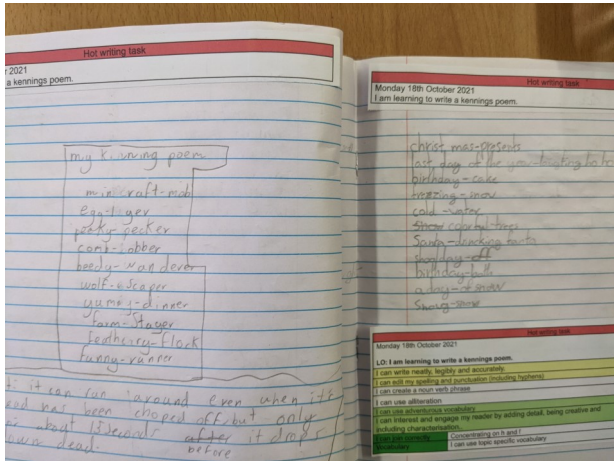 Hot writing task
r 2021
a kennings poem.
my kinning poem
mincraft-mob
egg-layer
pecky-pecker
comb-bobber
beedy-wanderer
wolf-escaper
yumey-dinner
farm-stayer
feathery-flock
funny-runner
it can run around even when it's
ead has been choped off but only
about 15 seconds after it drops
down dead. before
Hot writing task
Monday 18th October 2021
I am learning to write a kennings poem.
christmas-presents
last day of the year-
birthday-cake
freezing-snow
cold-water
Santa-
day-off
birthday-
a day-of snow
Hot writing task
Monday 18th October 2021
LO: I am learning to write a kennings poem.
I can write neatly, legibly and accurately.
I can edit my spelling and punctuation (including hyphens)
I can create a noun verb phrase
I can use alliteration
I can use adventurous vocabulary
I can interest and engage my reader by adding detail, being creative and
including characterisation.
I can join correctly Concentrating on h and f
Vocabulary I can use topic specific vocabulary